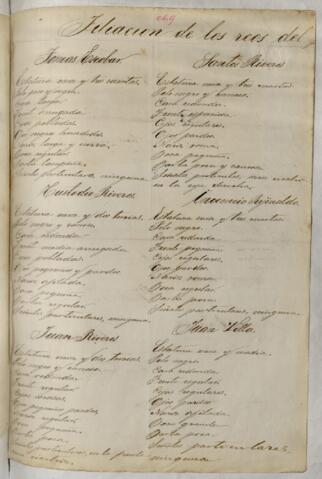 Filiacion de los reos del
Tomas Escobar
Estatura vara y tres cuartas
Pelo por negro
Cara larga
Frente arrugada
Cejas pobladas
Ojos negros
Nariz larga y
Boca regular
Barba
Señales particulares ninguna
Custodio Riveros
Estatura vara y dos tercias
Pelo negro y canoso
Cara redonda
Frente media arrugada
Cejas pobladas
Ojos pequeños y pardos
Nariz afilada
Boca pequeña
Barba regular
Señales particulares, ninguna
Juan Riveros
Estatura vara y dos tercias
Pelo negro y canoso
Cara redonda
Frente regular
Cejas
Ojos pequeños pardos
Nariz regular
Boca pequeña
Barba poca
Señales particulares, en la frente
Santos Riveros
Estatura vara y tres cuartas
Pelo negro y canoso
Cara redonda
Frente espaciosa
Cejas regulares
Ojos pardos
Nariz roma
Boca pequeña
Barba poca y canosa
Señales particulares,
en la ceja derecha
Estatura vara y tres cuartas
Pelo negro
Cara redonda
Frente pequeña
Cejas regulares
Ojos pardos
Nariz roma
Boca regular
Barba poca
Señales particulares, ninguna
Juan Villa
Estatura vara y media
Pelo negro
Cara redonda
Frente regular
Cejas regulares
Ojos pardos
Nariz afilada
Boca grande
Barba poca
Señales particulares
ninguna